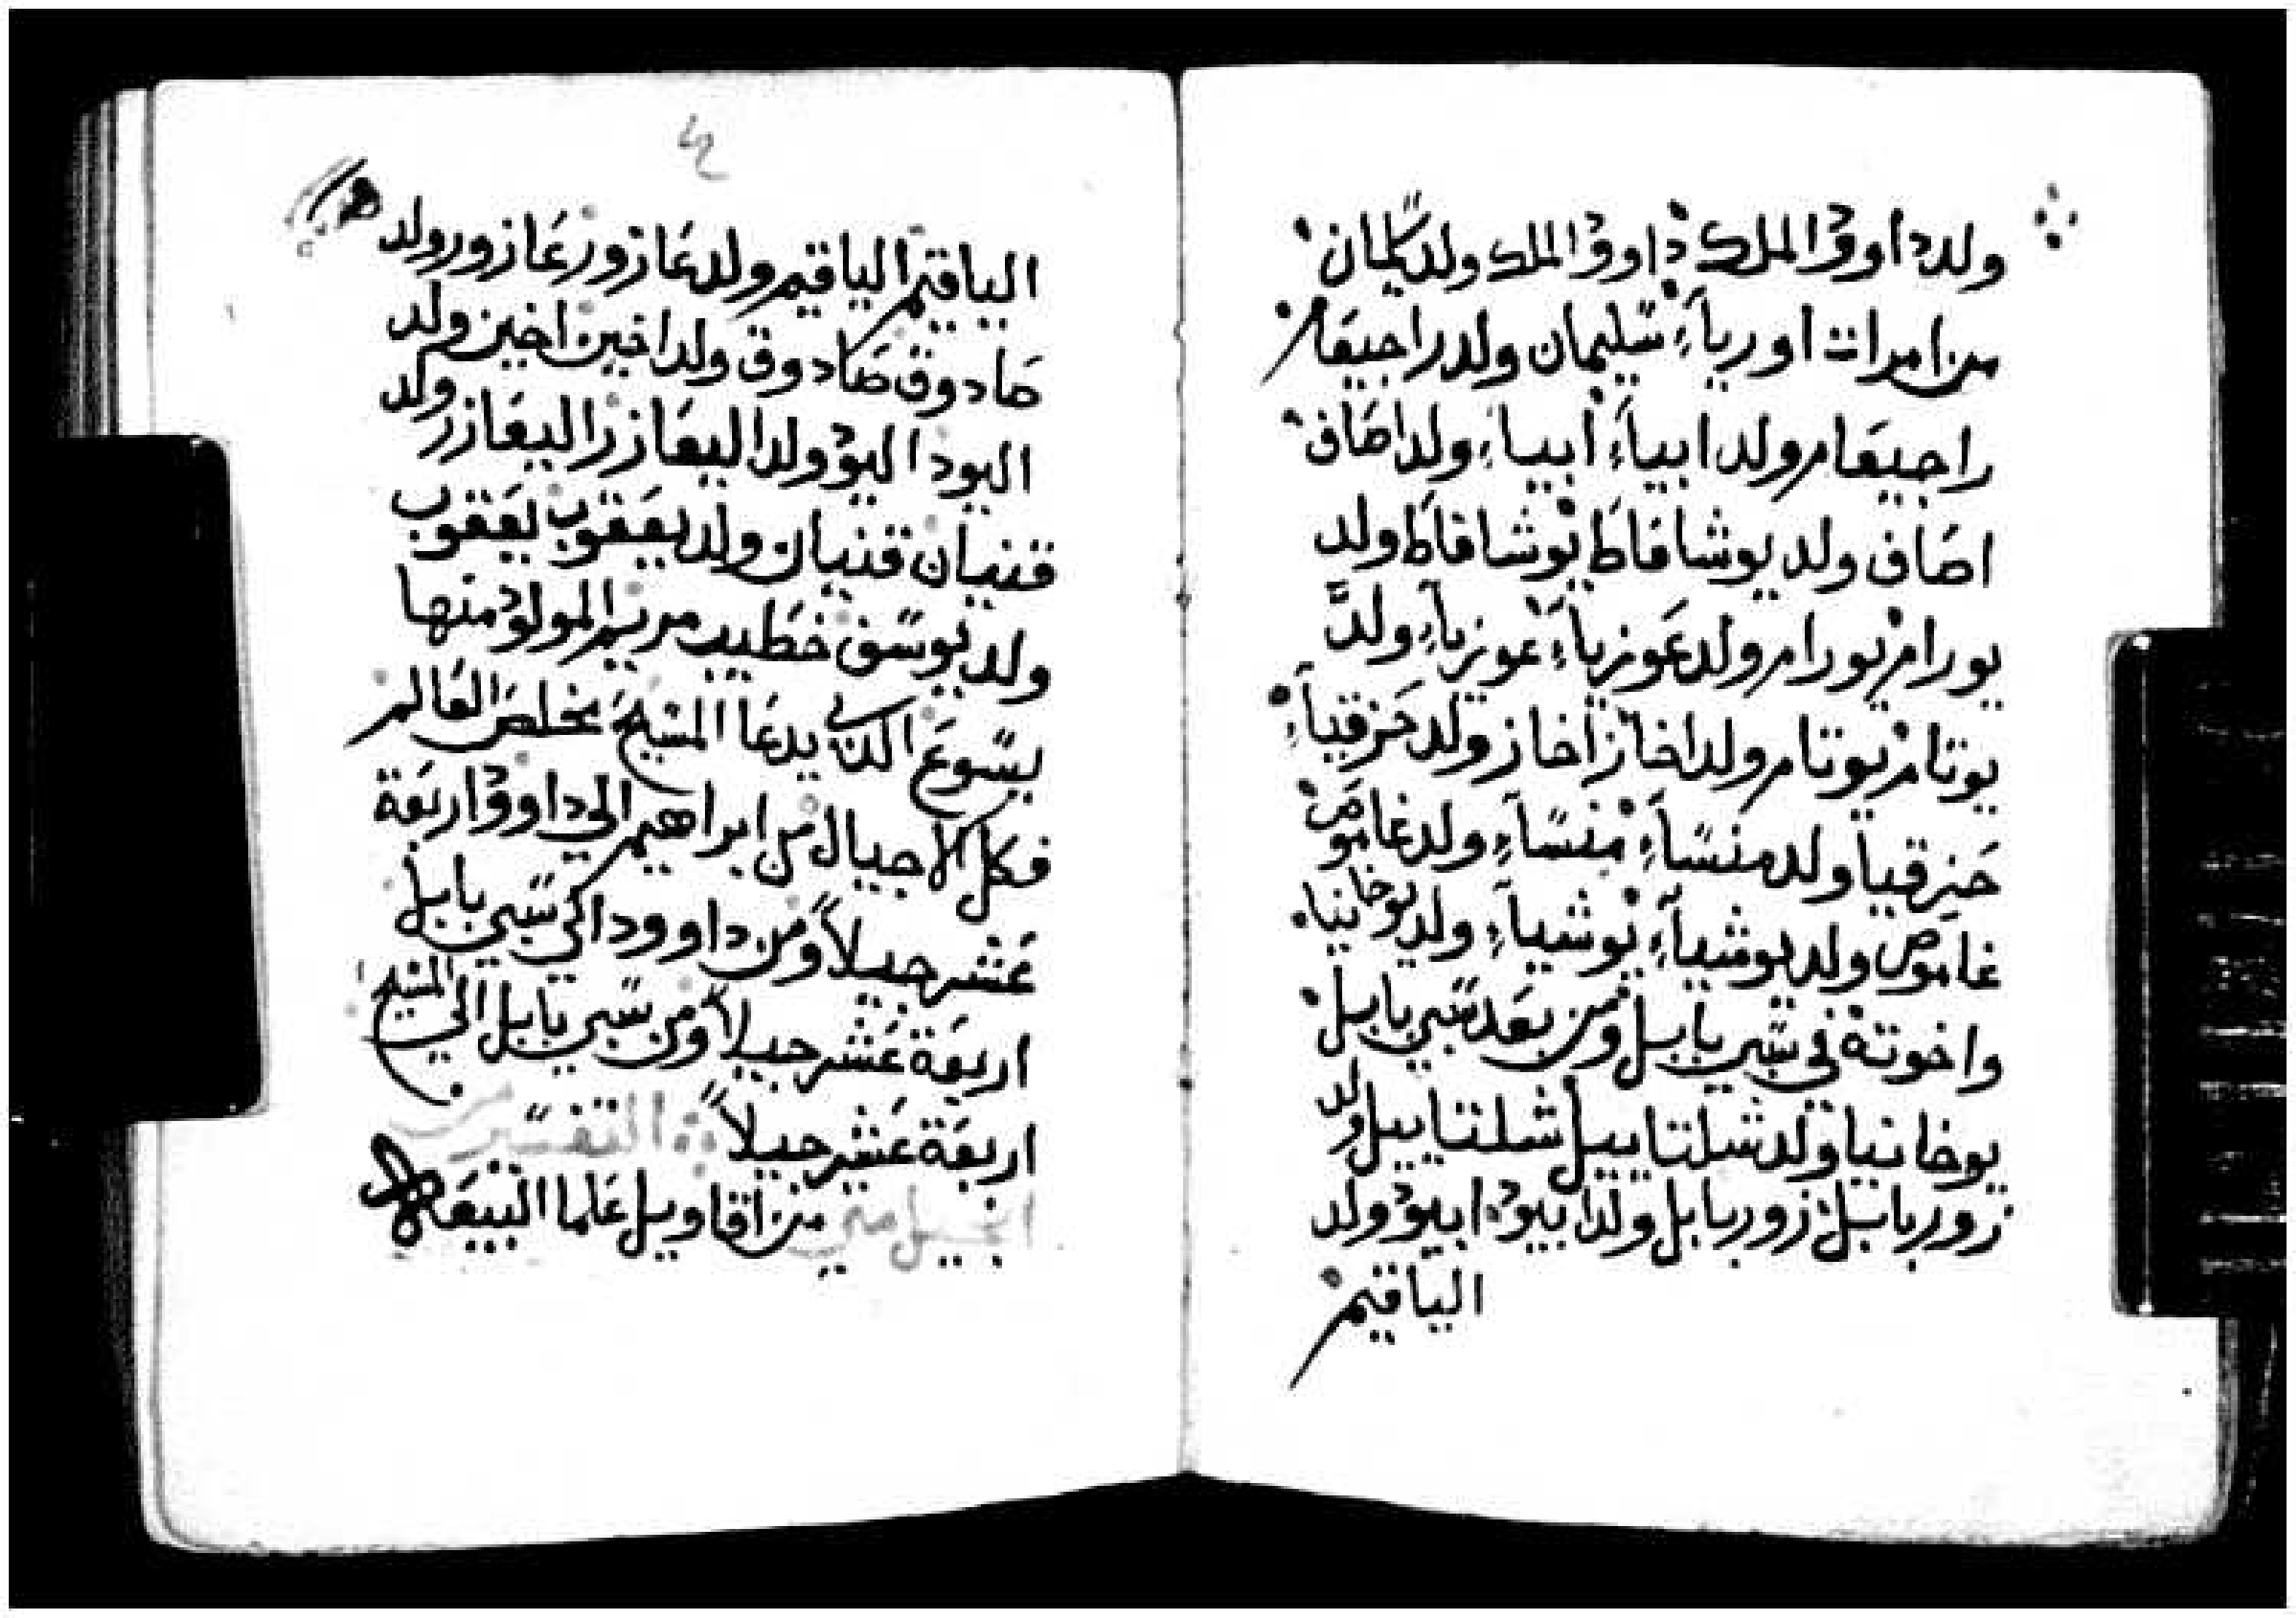 ولد داوود الملك داوود الملك ولد سليمان
من امرات اورياء سليمان ولد راحبيعام
راحبيعام ولد ابياء ابياء ولد اصاف
اصاف ولد يوشافاط يوشافاط ولد
يورام يورام ولد عوزياء عوزياء ولد
يوتام يوتام ولد اخاز اخاز ولد حزقياء
حزقيا ولد منساء منساء ولد غاموص
غاموص ولد يوشياء يوشياء ولد يوخانيا
واخوته في سبي بابل ومن بعد سبي بابل
يوخانيا ولد شلتاييل شلتاييل ولد
زوربابل زوربابل ولد ابيود ابيود ولد
الياقيم
الياقيم الياقيم ولد عازور عازور ولد
صادوق صادوق ولد اخين اخين ولد
اليود اليود ولد اليعازر اليعازر ولد
قنيان قنيان ولد يعقوب يعقوب
ولد يوسف خطيب مريم المولود منها
يسوع الدي يدعا المسيح مخلص العالم
فكل الاجيال من ابراهيم الي داوود اربعة
عشر جيلاً ومن داوود الي سبي بابل
اربعة عشر جيلاً ومن سبي بابل الي المسيح
اربعة عشر جيلاً التفسير
من اقاويل علما البيعة